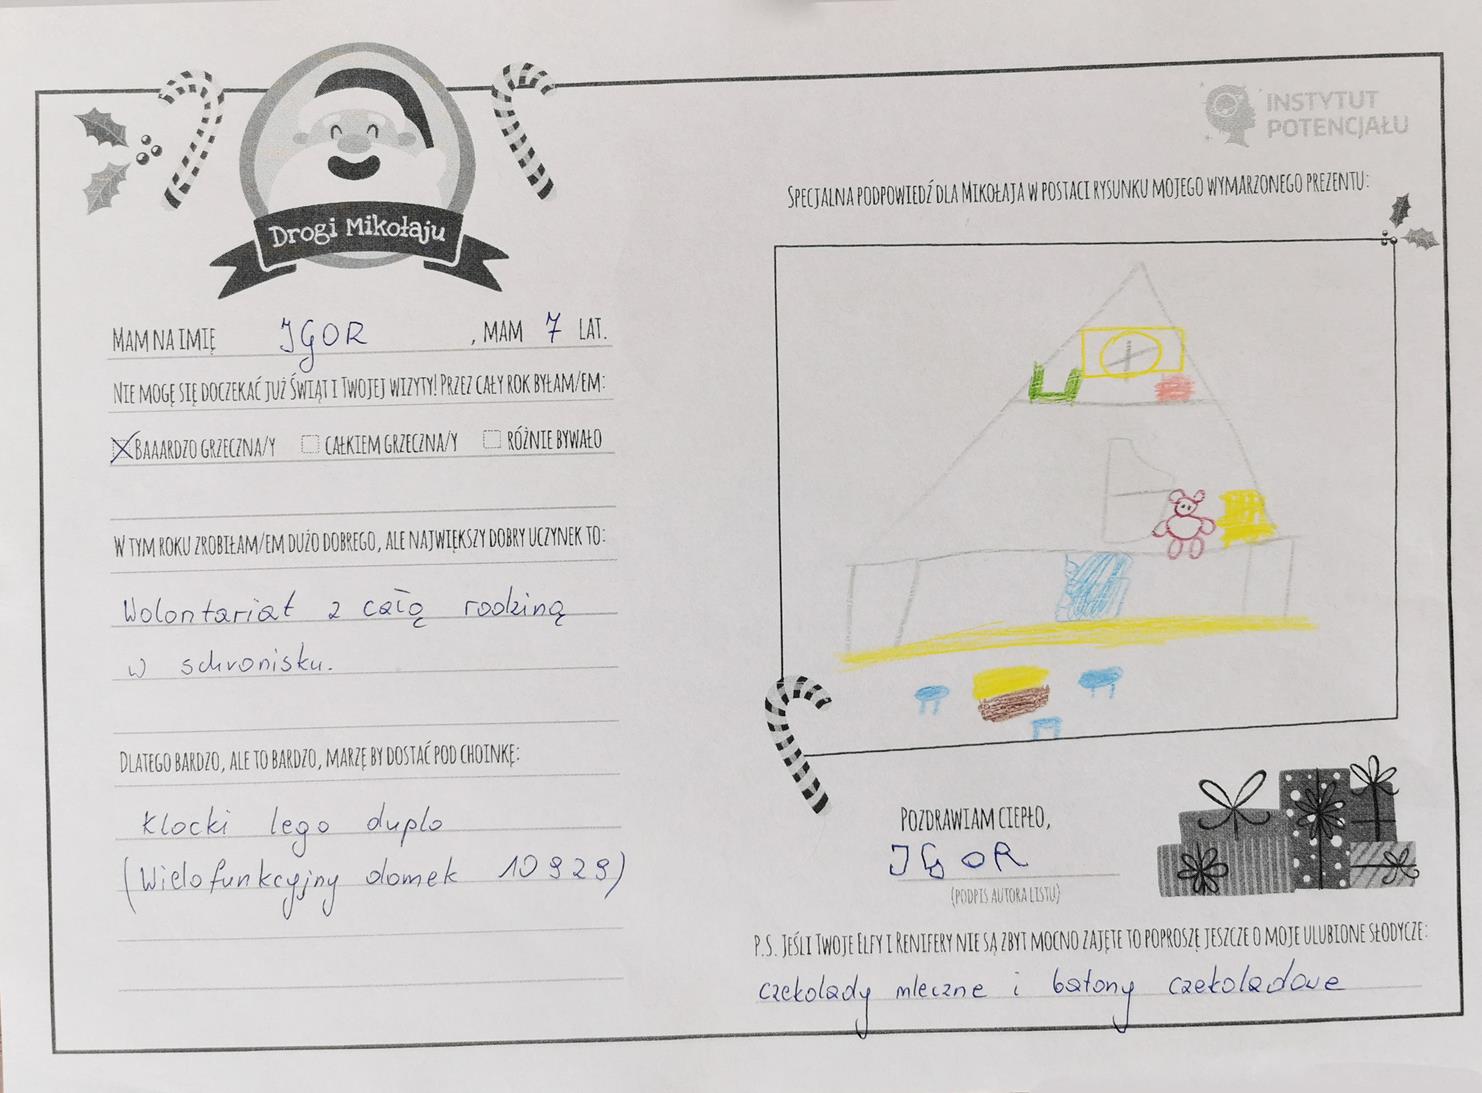 Drogi Mikołaju
MAM NA IMIĘ IGOR, MAM 7 LAT.
NIE MOGĘ SIĘ DOCZEKAĆ JUŻ ŚWIĄT I TWOJEJ WIZYTY! PRZEZ CAŁY ROK BYŁAM/EM:
BAAARDZO GRZECZNA/Y CAŁKIEM GRZECZNA/Y RÓŻNIE BYWAŁO
W TYM ROKU ZROBIŁAM/EM DUŻO DOBREGO, ALE NAJWIĘKSZY DOBRY UCZYNEK TO:
Wolontariat z całą rodziną
w schronisku.
DLATEGO BARDZO, ALE TO BARDZO, MARZĘ BY DOSTAĆ POD CHOINKĘ:
Klocki lego duplo
(Wielofunkcyjny domek 10929)
INSTYTUT
POTENCJAŁU
SPECJALNA PODPOWIEDŹ DLA MIKOŁAJA W POSTACI RYSUNKU MOJEGO WYMARZONEGO PREZENTU:
POZDRAWIAM CIEPŁO,
IGOR
(PODPIS AUTORA LISTU)
P.S. JEŚLI TWOJE ELFY I RENIFERY NIE SĄ ZBYT MOCNO ZAJĘTE TO POPROSZĘ JESZCZE O MOJE ULUBIONE SŁODYCZE:
czekolady mleczne i batony czekoladowe